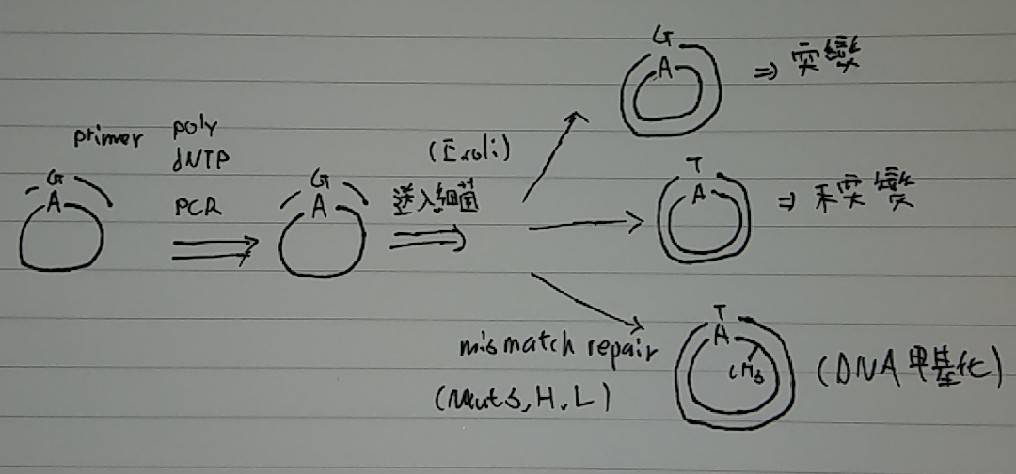 G
A
primer
poly
dNTP
PCR
G
A
(E.coli)
送入細菌
G
A
⇒ 突變
T
A
⇒ 未突變
mismatch repair
(MutS, H, L)
T
A
CH3
(DNA 甲基化)